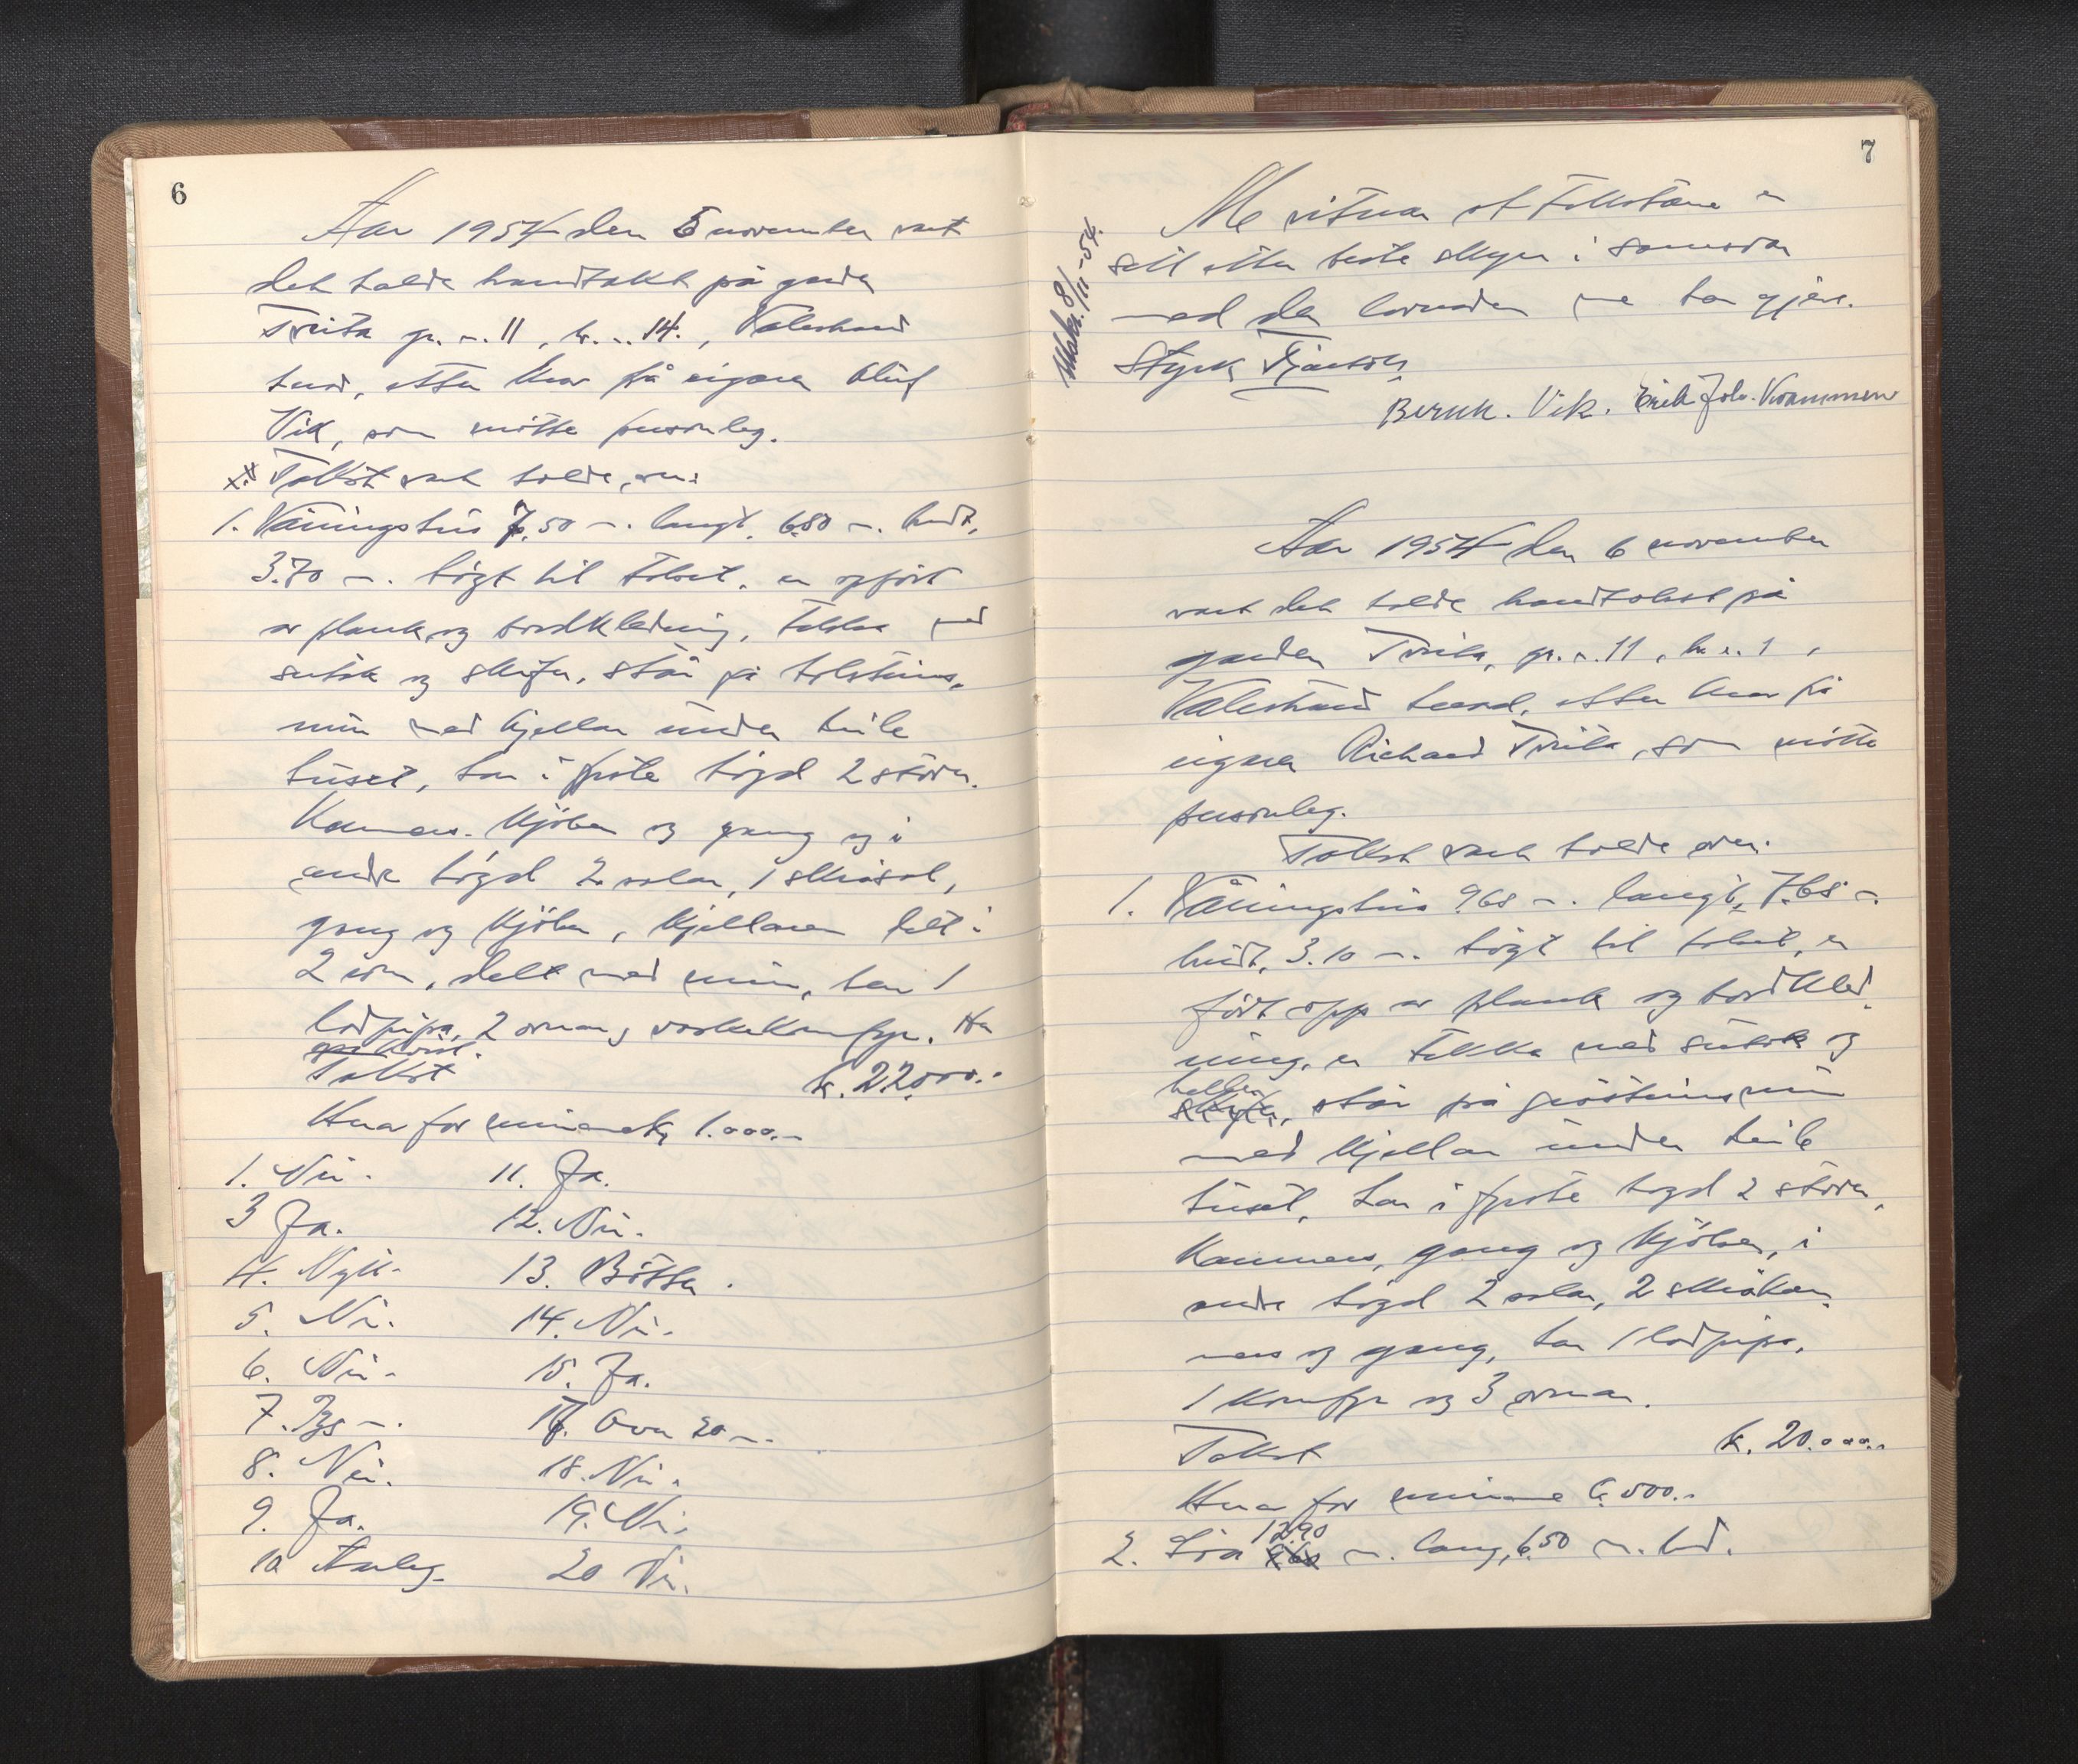 6
Aar 1954 den 5 november vart
det halde brandtakst på garden
Tveita gr. n. 11, br. n. 14., Valestrand
herad, etter krav frå eigaren Oluf
Vik, som møtte personleg.
Takst vart halde over:
1. Våningshus 7,50 m. langt, 6.80 m. breidt,
3.70 m. høgt til róstet, er oppført
av plank og bordkledning, tekka med
sutak og skifer, står på holsteins-
mur med kjellar under heile
huset, har i fyrste høgd 2 stover.
Kammers. Kjøken og gang og i
andre høgd 2 salar, 1 skråsal,
gang og kjøken, kjellaren delt i
2 rom, delt med mur, har 1
lodpipa, 2 omnar, vaskekomfyr. Ha
Takst k. 22,000.-
Herav for murverk 1.000.-
1. Nei.
3 Ja.
4. Nytt.
5. Nei.
6. Nei.
7. m.
8. Nei.
9. Ja.
10 Aarleg.
11. Ja.
12. Nei.
13. Bøtter.
14. Nei.
15. Ja.
17. Over 20 m.
18. Nei.
19. Nei.
20 Nei.
7
Me vitnar at takstane er
sett etter beste skyn i samsvar
med den lovnaden me har gjeve.
Styrk Tjætveit
Bernh. Vik. Erik Joh. Kvammen
8/11-54.
Aar 1954 den 6 november
vart det halde brandtakst på
garden Tveita, gr. n. 11, br. n. 1,
Valestrand herad, etter krav frå
eigaren Richard Tveita, som møtte
personleg.
Takst vart halde over:
1. Våningshus 9.60 m. langt, 7.65 m.
breidt, 3.10 m. høgt til róstet, er
ført opp av plank og bordkled-
ning, er tekka med sutak og
heller
skifer, står på gråsteinsmur
med kjellar under heile
huset, har i fyrste høgd 2 stover,
Kammers, gang og kjøken, i
andre høgd 2 salar, 2 skråkam-
mers og gang, har 1 lodpipa,
1 komfyr og 3 omnar.
Takst k. 20.000.-
Herav for murane 6.500.-
12.90
2. Løa 9.60 m. lang, 6.50 m. brd.